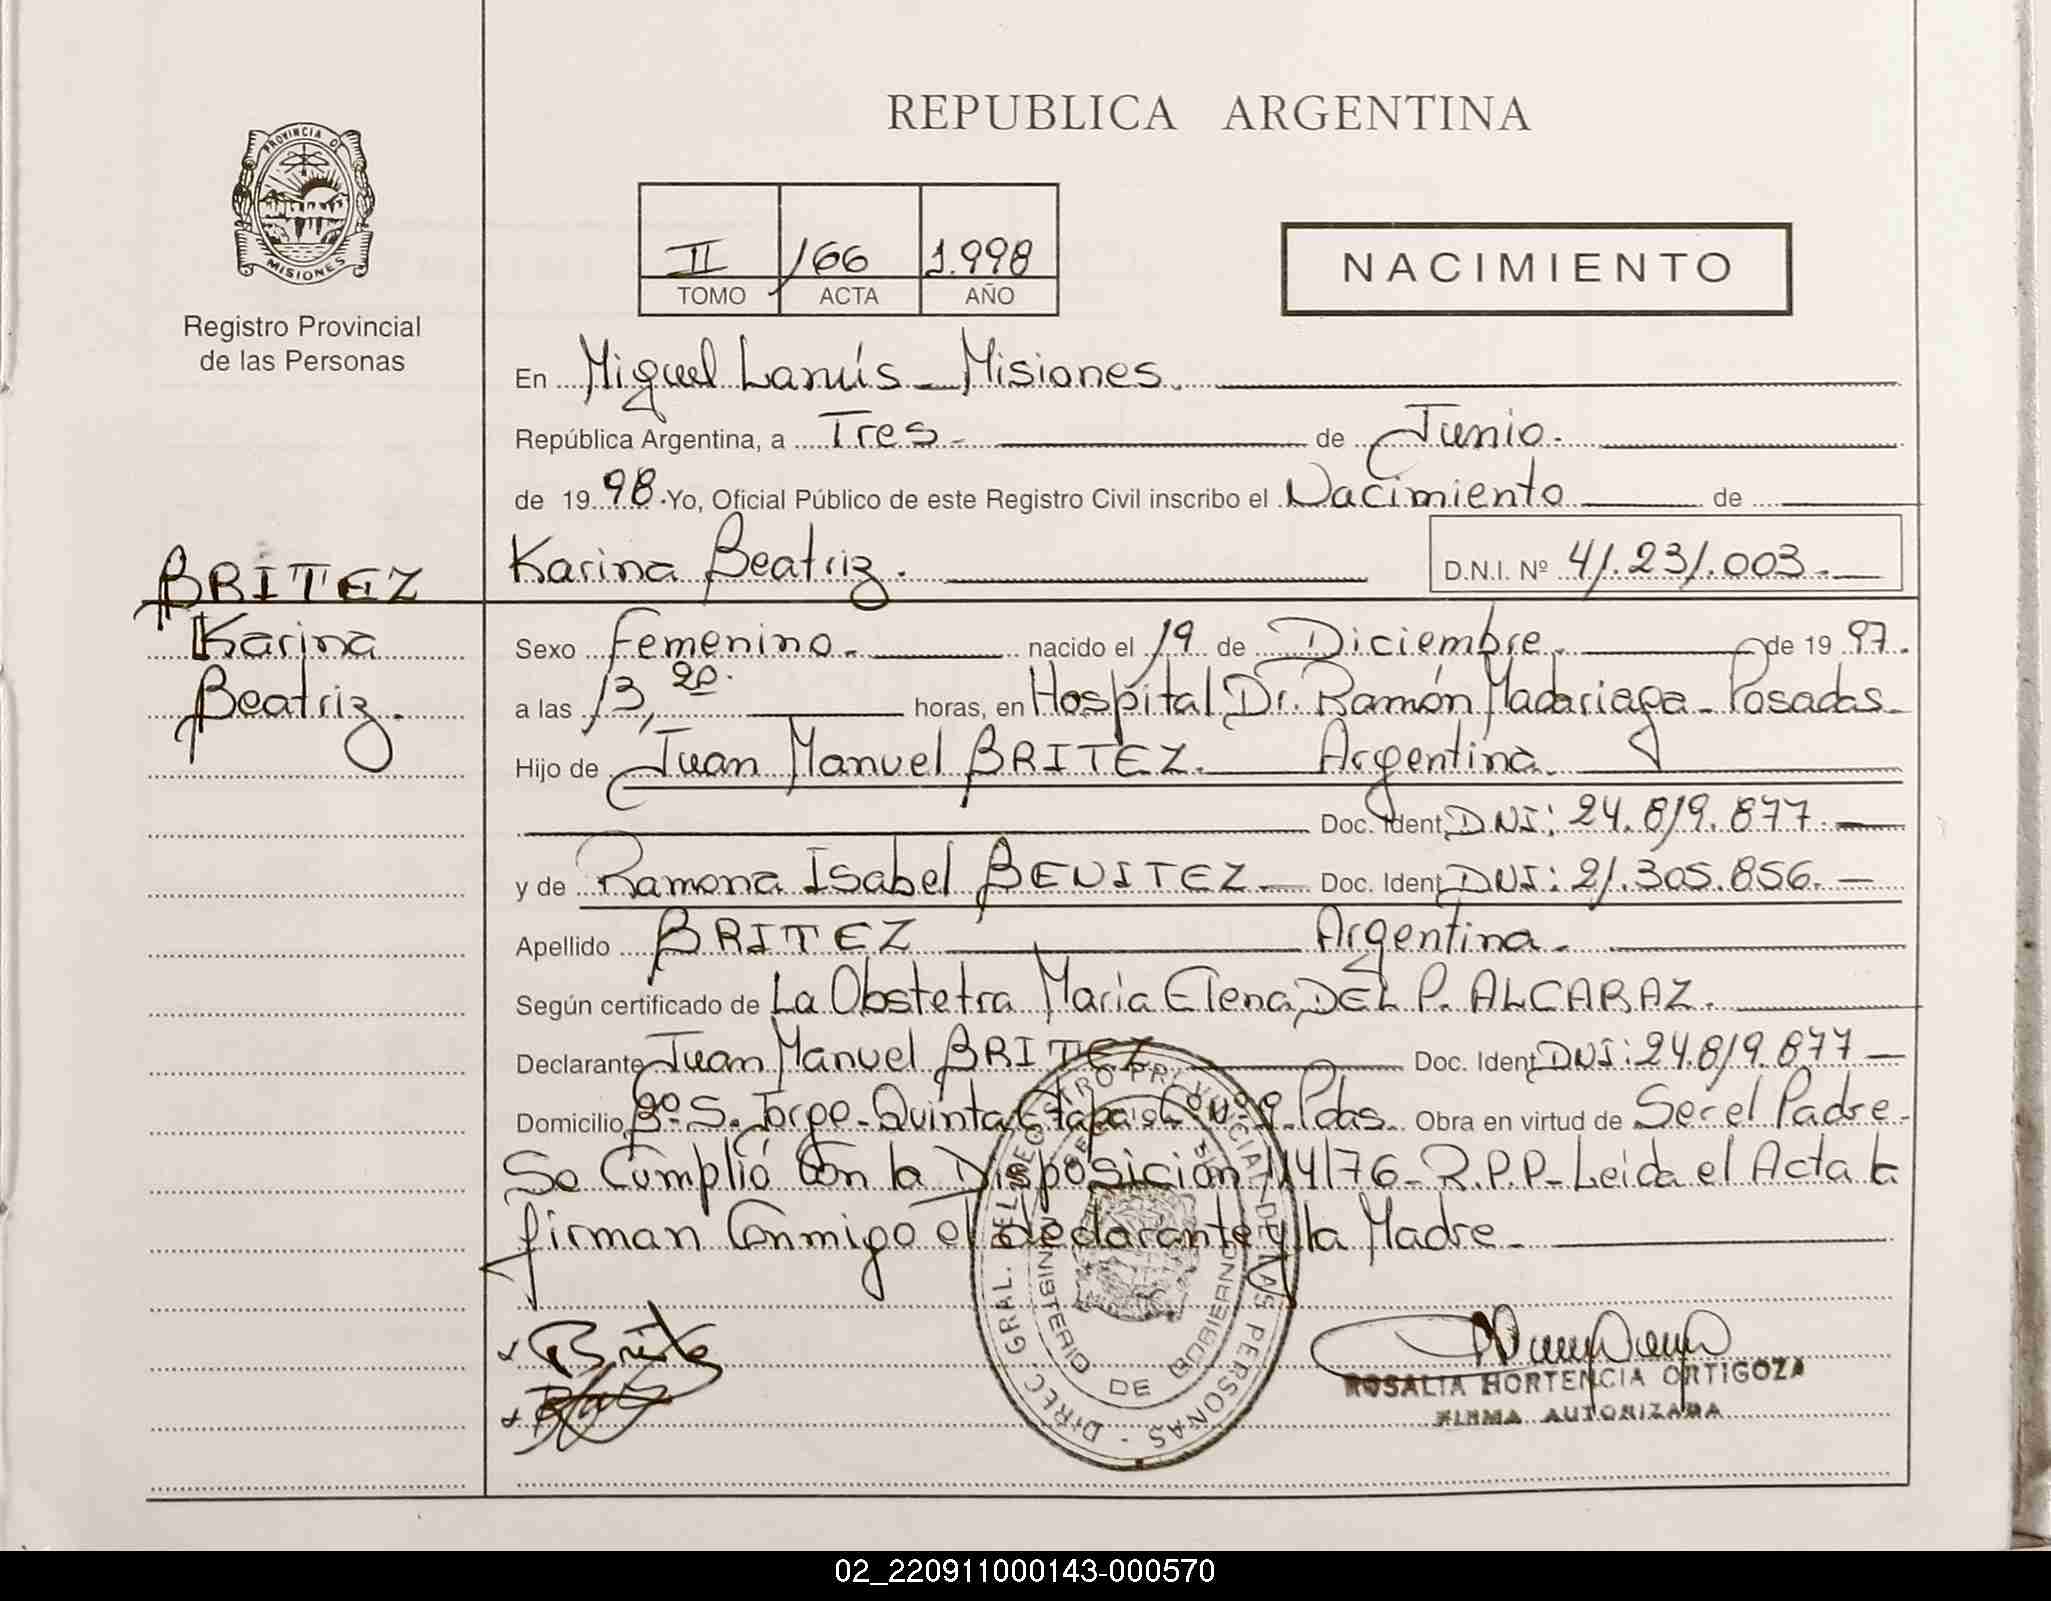 REPUBLICA ARGENTINA
PROVINCIA DE
MISIONES
Registro Provincial
de las Personas
II 166 1.998
TOMO ACTA AÑO
NACIMIENTO
En Miguel Lanús - Misiones.
República Argentina, a Tres - de Junio.
de 19 98. Yo, Oficial Público de este Registro Civil inscribo el Nacimiento de
Karina Beatriz. D.N.I. Nº 41.231.003.
BRITEZ
Karina
Beatriz.
Sexo Femenino. nacido el 19 de Diciembre. de 19 97.
a las 13, 20. horas, en Hospital Dr. Ramón Madariaga - Posadas.
Hijo de Juan Manuel BRITEZ. Argentina.
Doc. Ident. DNI: 24.819.877.
y de Ramona Isabel BENITEZ Doc. Ident. DNI: 21.305.856.
Apellido BRITEZ Argentina.
Según certificado de La Obstetra Maria Elena DEL P. ALCARAZ.
Declarante Juan Manuel BRITEZ Doc. Ident. DNI: 24.819.877
Domicilio Bº. S. Jorge - Quinta Etapa Cª Nº 9. Pdas. Obra en virtud de Ser el Padre.
Se Cumplió Con la Disposición 114/76 - R.P.P - Leida el Acta la
firman Conmigo el declarante y la Madre.
DIREC. GRAL. DEL REGISTRO PROVINCIAL DE LAS PERSONAS
MINISTERIO DE GOBIERNO
Britez
ROSALIA HORTENCIA ORTIGOZA
FIRMA AUTORIZADA
02_220911000143-000570